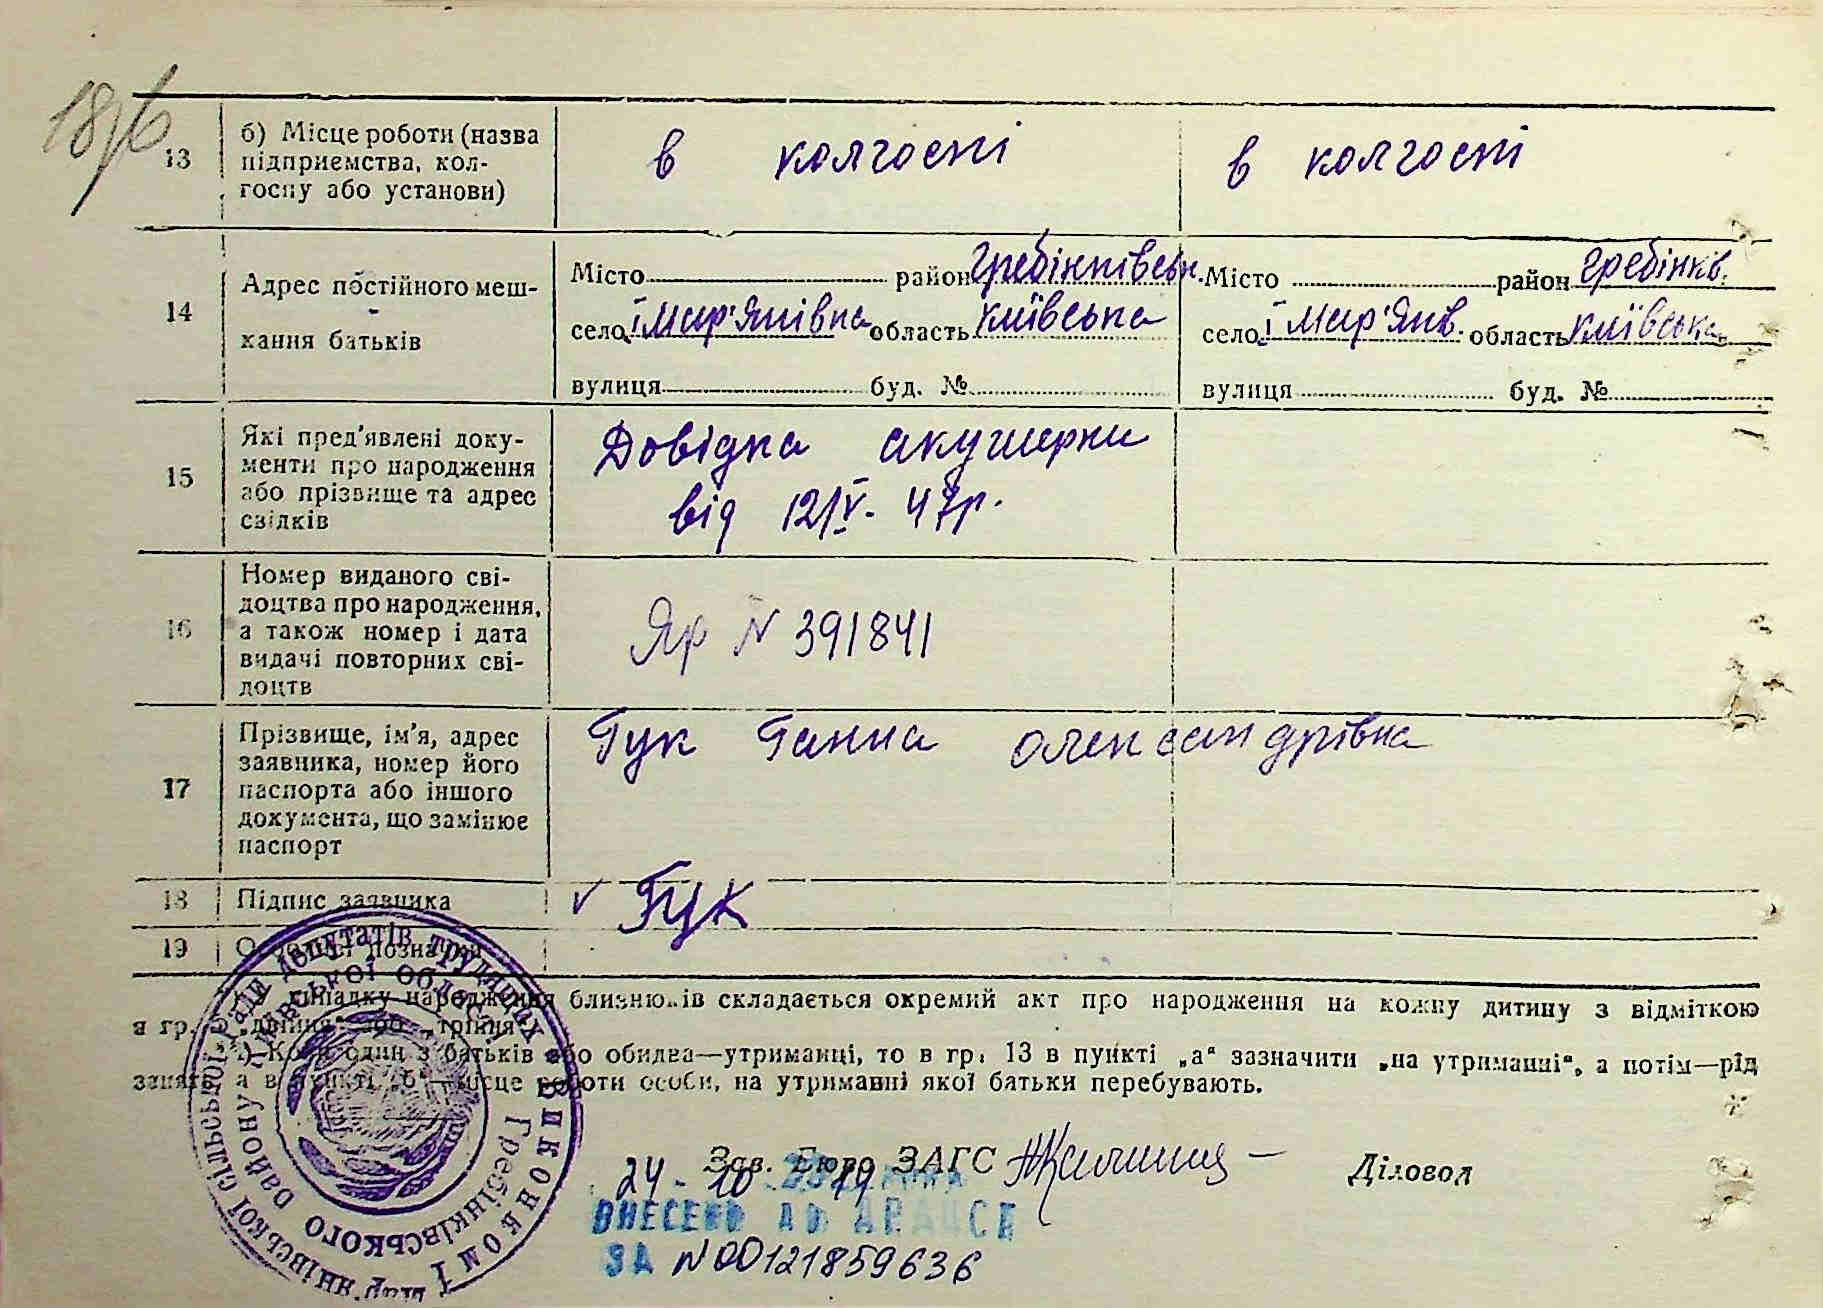 18/6
13 б) Місце роботи (назва підприємства, колгоспу або установи)
в колгоспі
в колгоспі
14 Адрес постійного мешкання батьків
Місто район Гребінківськ.
село І Мар'янівка область Київська
вулиця буд. №
Місто район Гребінків.
село І Мар'янів. область Київська
вулиця буд. №
15 Які пред'явлені документи про народження або прізвище та адрес свідків
Довідка акушерки
від 12/V. 47р.
16 Номер виданого свідоцтва про народження, а також номер і дата видачі повторних свідоцтв
Яр N 391841
17 Прізвище, ім'я, адрес заявника, номер його паспорта або іншого документа, що замінює паспорт
Гук Ганна Олександрівна
18 Підпис заявника
✓ Гук
19 позначки
випадку народження близнюків складається окремий акт про народження на кожну дитину з відміткою
в гр. „двійня“ або „трійня“.
Коли один з батьків або обидва—утриманці, то в гр. 13 в пункті „а“ зазначити „на утриманні“, а потім—рід
занять, а в пункті „б“—місце роботи особи, на утриманні якої батьки перебувають.
Зав. Бюро ЗАГС
Діловод
24-10 19
ВНЕСЕНО ДО ДРАЦСГ
ЗА N 00121859636
Виконком І Мар'янівської сільської Ради депутатів трудящих
Гребінківського району Київської області